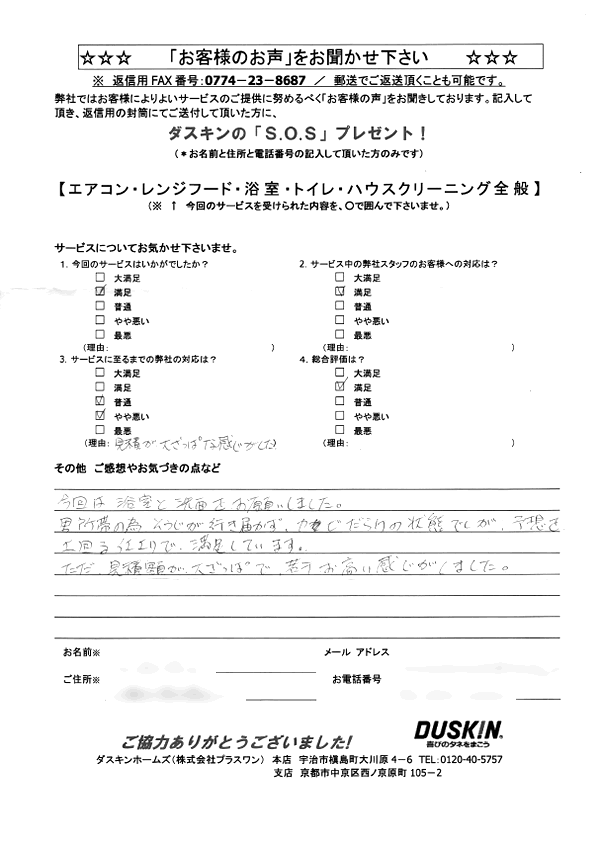 ☆☆☆ 「お客様のお声」をお聞かせ下さい ☆☆☆
※ 返信用FAX番号:0774-23-8687 / 郵送でご返送頂くことも可能です。
弊社ではお客様によりよいサービスのご提供に努めるべく「お客様の声」をお聞きしております。記入して
頂き、返信用の封筒にてご送付して頂いた方に、
ダスキンの「S.O.S」プレゼント！
(*お名前と住所と電話番号の記入して頂いた方のみです)
【エアコン・レンジフード・浴室・トイレ・ハウスクリーニング全般】
(※ ↑ 今回のサービスを受けられた内容を、○で囲んで下さいませ。)
サービスについてお気かせ下さいませ。
1. 今回のサービスはいかがでしたか？
□ 大満足
☑ 満足
□ 普通
□ やや悪い
□ 最悪
(理由: )
2. サービス中の弊社スタッフのお客様への対応は？
□ 大満足
☑ 満足
□ 普通
□ やや悪い
□ 最悪
(理由: )
3. サービスに至るまでの弊社の対応は？
□ 大満足
□ 満足
☑ 普通
☑ やや悪い
□ 最悪
(理由: 見積が大ざっぱな感じがした)
4. 総合評価は？
□ 大満足
☑ 満足
□ 普通
□ やや悪い
□ 最悪
(理由: )
その他 ご感想やお気づきの点など
今回は浴室と洗面をお願いしました。
男所帯の為 そうじが行き届かず、カビだらけの状態でしが、予想を
上回る仕上りで、満足しています。
ただ、見積額が大ざっぱで、若干お高い感じがしました。
お名前※
メール アドレス
ご住所※
お電話番号
ご協力ありがとうございました!
DUSKIN.
喜びのタネをまこう
ダスキンホームズ(株式会社プラスワン) 本店 宇治市槇島町大川原 4-6 TEL:0120-40-5757
支店 京都市中京区西ノ京原町 105-2